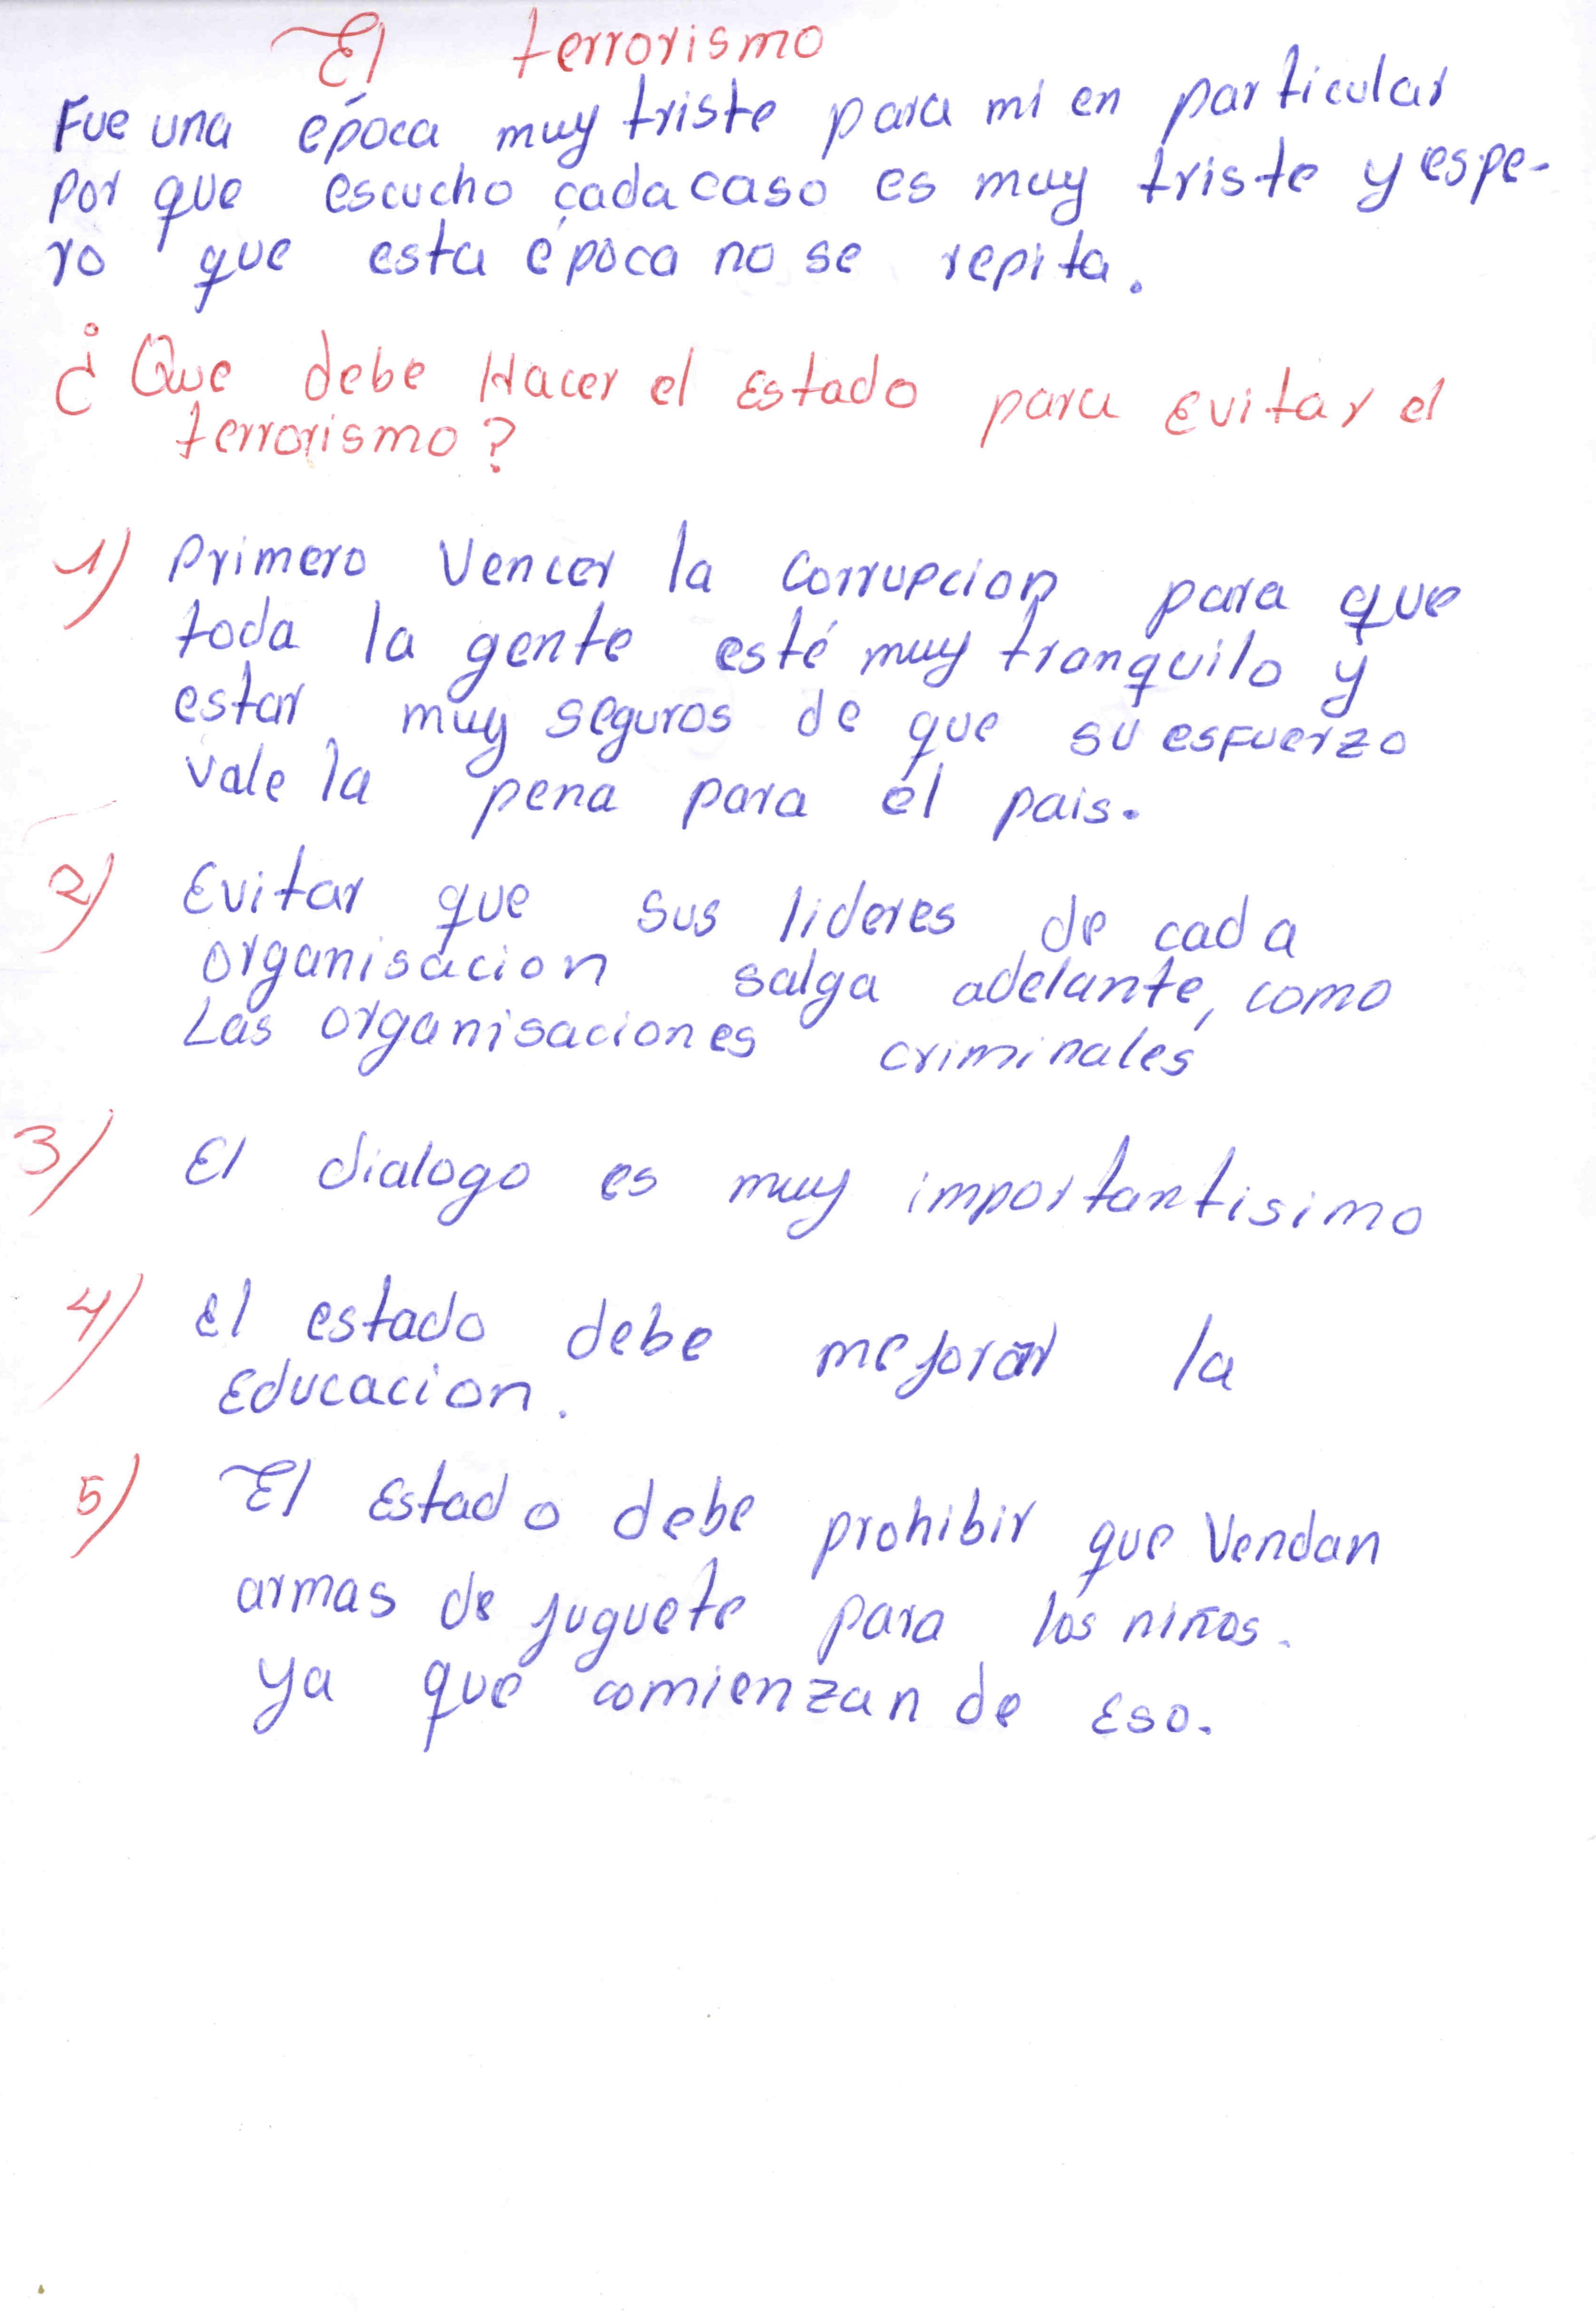 El terrorismo
Fue una época muy triste para mi en particular
por que escucho cada caso es muy triste y espe-
ro que esta época no se repita.
¿Que debe Hacer el Estado para Evitar el
terrorismo?
1) Primero Vencer la Corrupcion para que
toda la gente esté muy tranquilo y
estar muy seguros de que su esfuerzo
vale la pena para el pais.
2) Evitar que sus lideres de cada
organisacion salga adelante, como
Las organisaciones criminales
3) El dialogo es muy importantisimo
4) El estado debe mejorar la
Educacion.
5) El Estado debe prohibir que Vendan
armas de juguete para los niños.
Ya que comienzan de Eso.